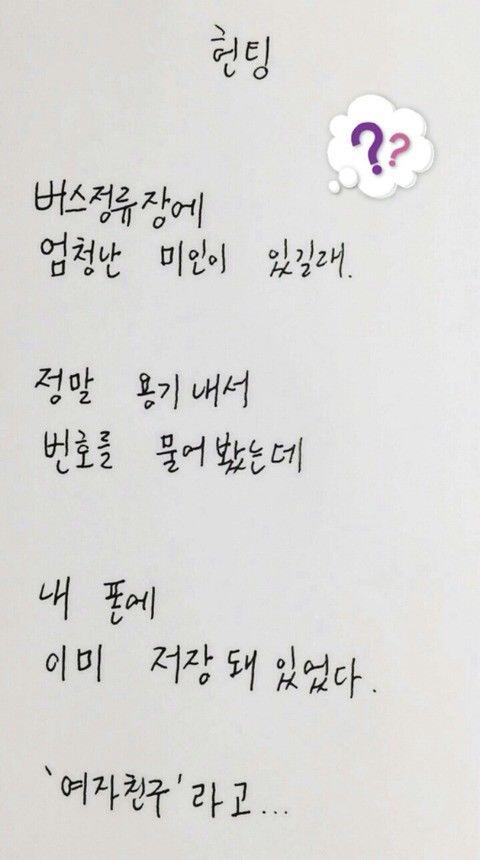 헌팅
??
버스정류장에
엄청난 미인이 있길래.
정말 용기 내서
번호를 물어봤는데
내 폰에
이미 저장 돼 있었다.
'여자친구'라고...